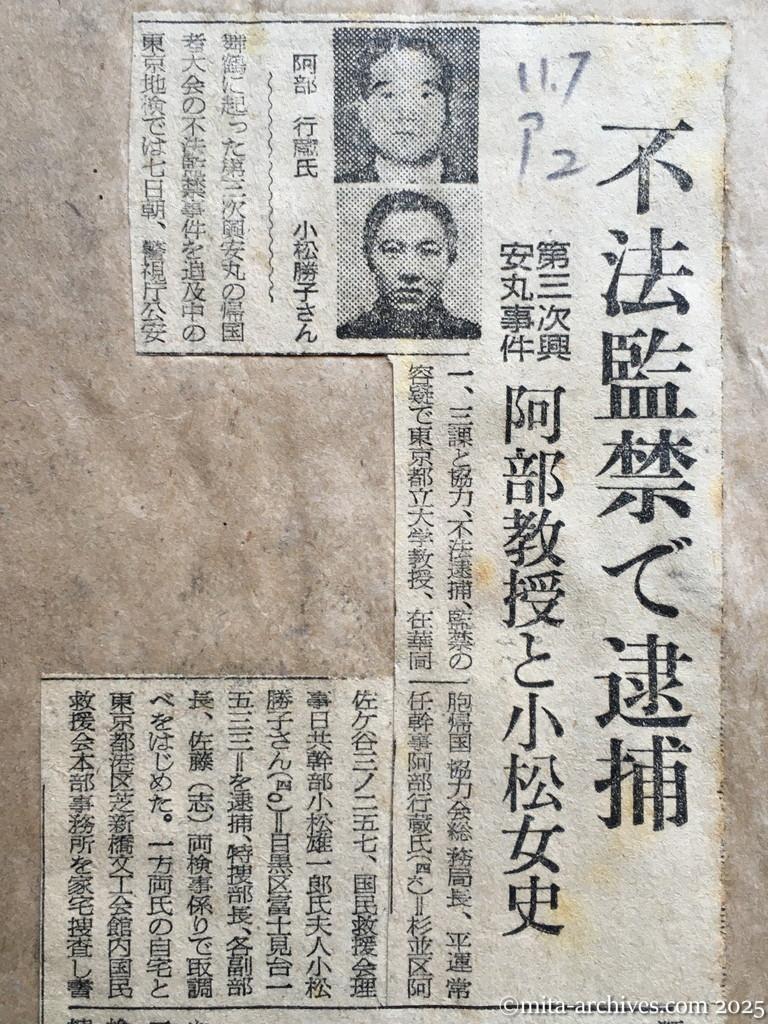 11.7
P2
不法監禁で逮捕
第三次興
安丸事件
阿部教授と小松女史
阿部 行蔵氏
小松勝子さん
舞鶴に起った第三次興安丸の帰国
者大会の不法監禁事件を追及中の
東京地検では七日朝、警視庁公安
一、三課と協力、不法逮捕、監禁の
容疑で東京都立大学教授、在華同
胞帰国協力会総務局長、平連常
任幹事阿部行蔵氏(四六)=杉並区阿
佐ケ谷三ノ二五七、国民救援会理
事日共幹部小松雄一郎氏夫人小松
勝子さん(四〇)=目黒区富士見台一
五三三=を逮捕、特捜部長、各副部
長、佐藤(志)両検事係りで取調
べをはじめた。一方両氏の自宅と
東京都港区芝新橋文工会館内国民
救援会本部事務所を家宅捜査し書
©mita-archives.com 2025